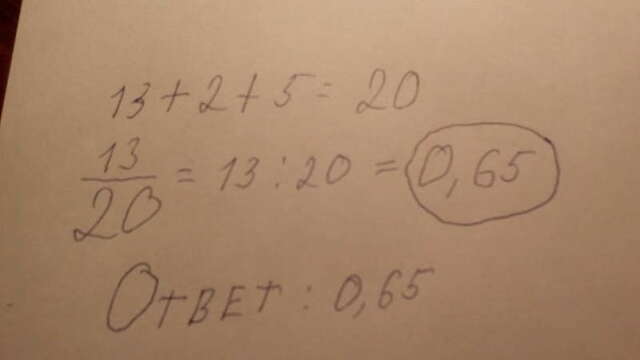 13+2+5=20
13/20 = 13:20 = 0,65
Ответ: 0,65